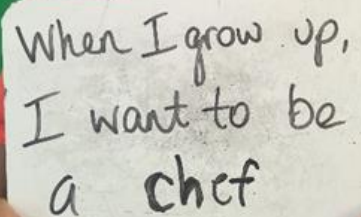 When I grow up,
I want to be
a chef